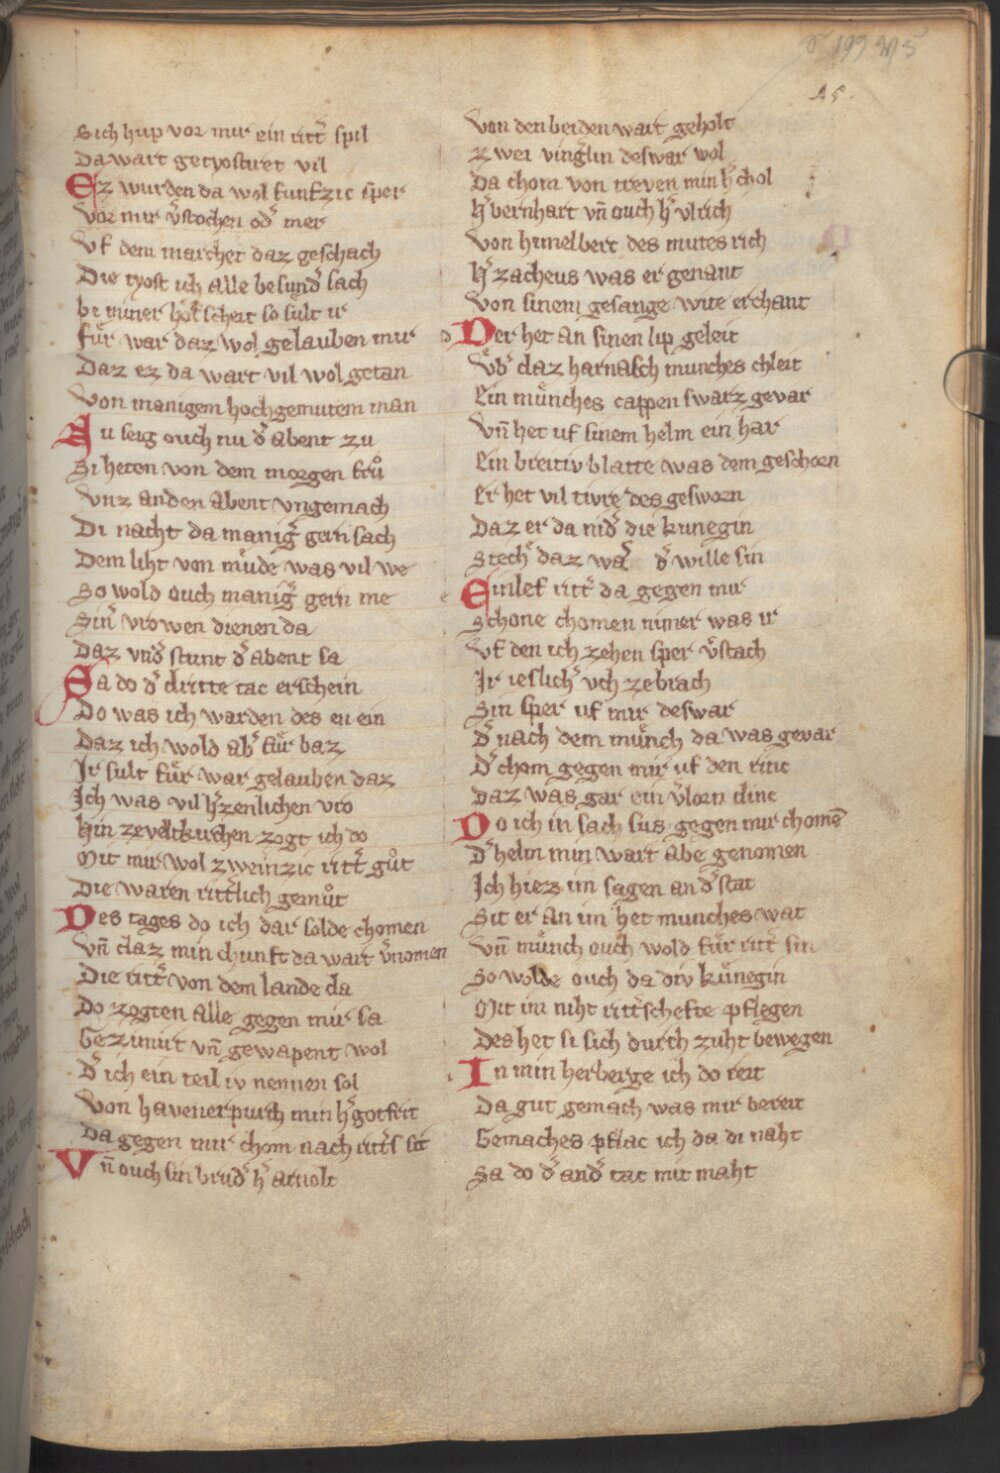 S 199 W 5
25.
Sich hup vor mir ein ritt̄ spil
Da wart getyostiret vil
Ez wurden da wol funfzic sper
Vor mir v̓stochen od̓ mer
Vf dem marchet daz geschach
Die tyost ich alle besund̓ sach
bi miner scheit so sult ir
fuͤr war daz wol gelauben mir
Daz ez da wart vil wol getan
Von manigem hochgemutem man
Nu seig ouch nu d̓ abent zu
Si heten von dem morgen fruͦ
Vnz an den abent vngemach
Di nacht da manig̓ gern sach
Dem liht von muͤde was vil we
So wold ouch manig̓ gern me
Sin̓ vrowen dienen da
Daz vnd̓ stunt d̓ abent sa
Sa do d̓ dritte tac erschein
Do was ich warden des en ein
Daz ich wold ab̓ fuͤr baz
Ir sult fuͤr war gelauben daz
Ich was vil h̓zenlichen vro
Hin zeveltkirchen zogt ich do
Mit mir wol zweinzic ritt̓ guͦt
Die waren ritt̓lich gemuͦt
Des tages do ich dar solde chomen
Vn̄ daz min chunft da wart v̓nomen
Die ritt̓ von dem lande da
Do zogten alle gegen mir sa
Gezimirt vn̄ gewapent wol
D̓ ich ein teil iv nennen sol
Von havenerpurch min h̓ gotfrit
Da gegen mir chom nach ritt̓s sit
Vn̄ ouch sin brud̓ h̓ arnolt
Von den beiden wart geholt
Zwei ving̓lin deswar wol
Da chom von treven min h̓ chol
H̓ bernhart vn̄ ouch h̓ vlrich
Von himelberc des mutes rich
H̓ zacheus was er genant
Von sinem gesange wite erchant
Der het an sinen lip geleit
Vͤb̓ daz harnasch munches chleit
Ein muͤnches cappen swarz gevar
Vn̄ het uf sinem helm ein har
Ein breitiv blatte was dem geschorn
Er het vil tivre des gesworn
Daz er da nid̓ die kunegin
Stech̓ daz wa͛ d̓ wille sin
Einlef ritt̓ da gegen mir
Schone chomen nimer was ir
Vf den ich zehen sper v̓stach
Ir ieslich̓ vch zebrach
Sin sper uf mir deswar
D̓ nach dem muͤnch da was gevar
D̓ chom gegen mir uf den rinc
Daz was gar ein v̓lorn dinc
Do ich in sach sus gegen mir chomē
D̓ helm min wart abe genomen
Ich hiez im sagen an d̓ stat
Sit er an im het munches wat
Vn̄ muͤnch ouch wold fuͤr ritt̓ sin
So wolde ouch da div kuͤnegin
Mit im niht ritt̓schefte pflegen
Des het si sich durch zuht bewegen
In min herberge ich do reit
Da gut gemach was mir bereit
Gemaches pflac ich da di naht
Sa do d̓ and̓ tac mit maht